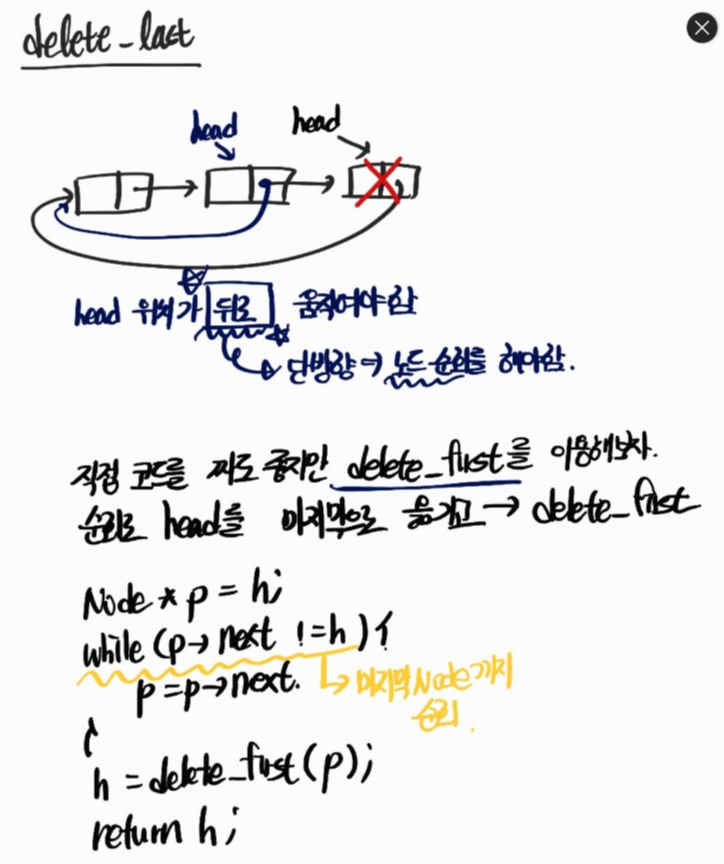 delete_last
head head
head 위치가 뒤로 움직여야함
단방향 → 노드 순회를 해야함.
직접 코드를 짜도 좋지만 delete_first를 이용해보자.
순회로 head를 마지막으로 옮기고 → delete_first
Node * p = h;
while (p→next != h) {
p = p→next.
↳ 마지막 Node까지
순회.
}
h = delete_first(p);
return h;